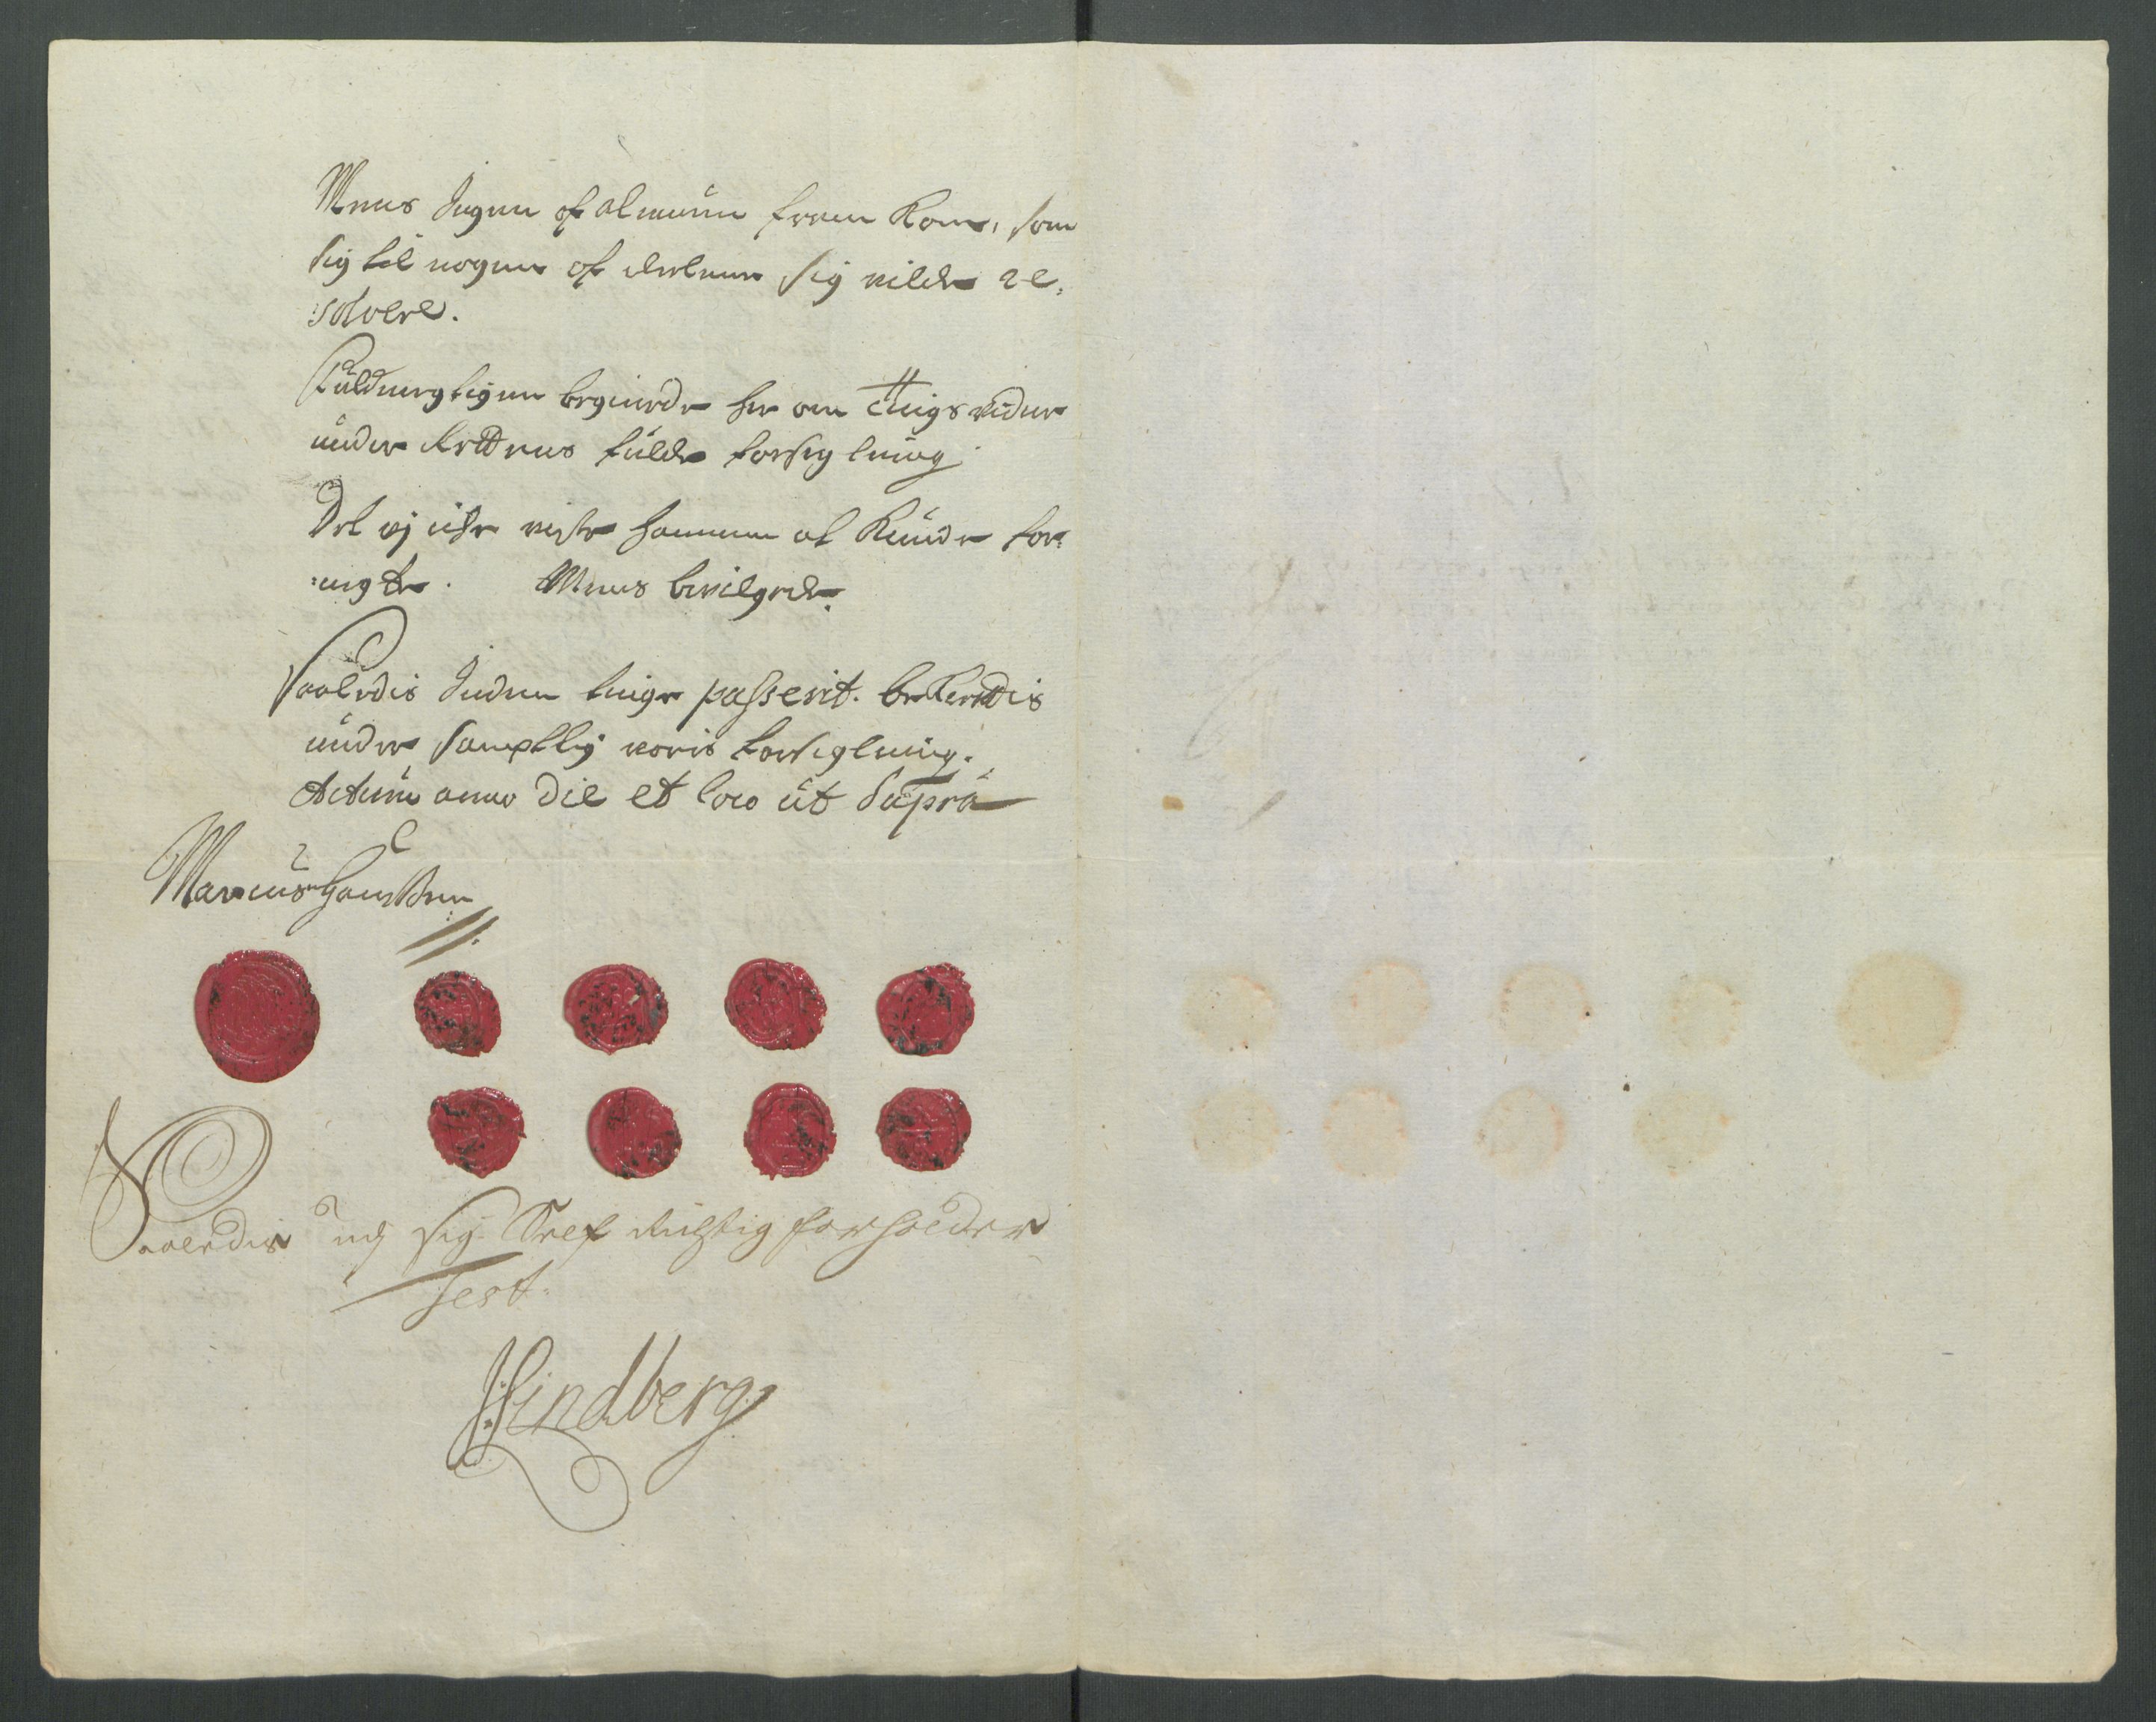 Mens Ingen af almuen frem kom, som
sig til nogen af delene sig vilde re:
:solvere.
Fuldmegtigen begierede her om tingsvidne
under Rettens fulde forseigling
Det vj iche viste hannem at kunde for:
:negte. Mens bevilgede.
Saaledis Inden tinge passerit. bekreftis
under samptlig voris forseigling.
Actum anno Die et loco ut Supra
Marcus Hanssen
Saaledis sig Self rigtig forholder
Test.
Lindberg